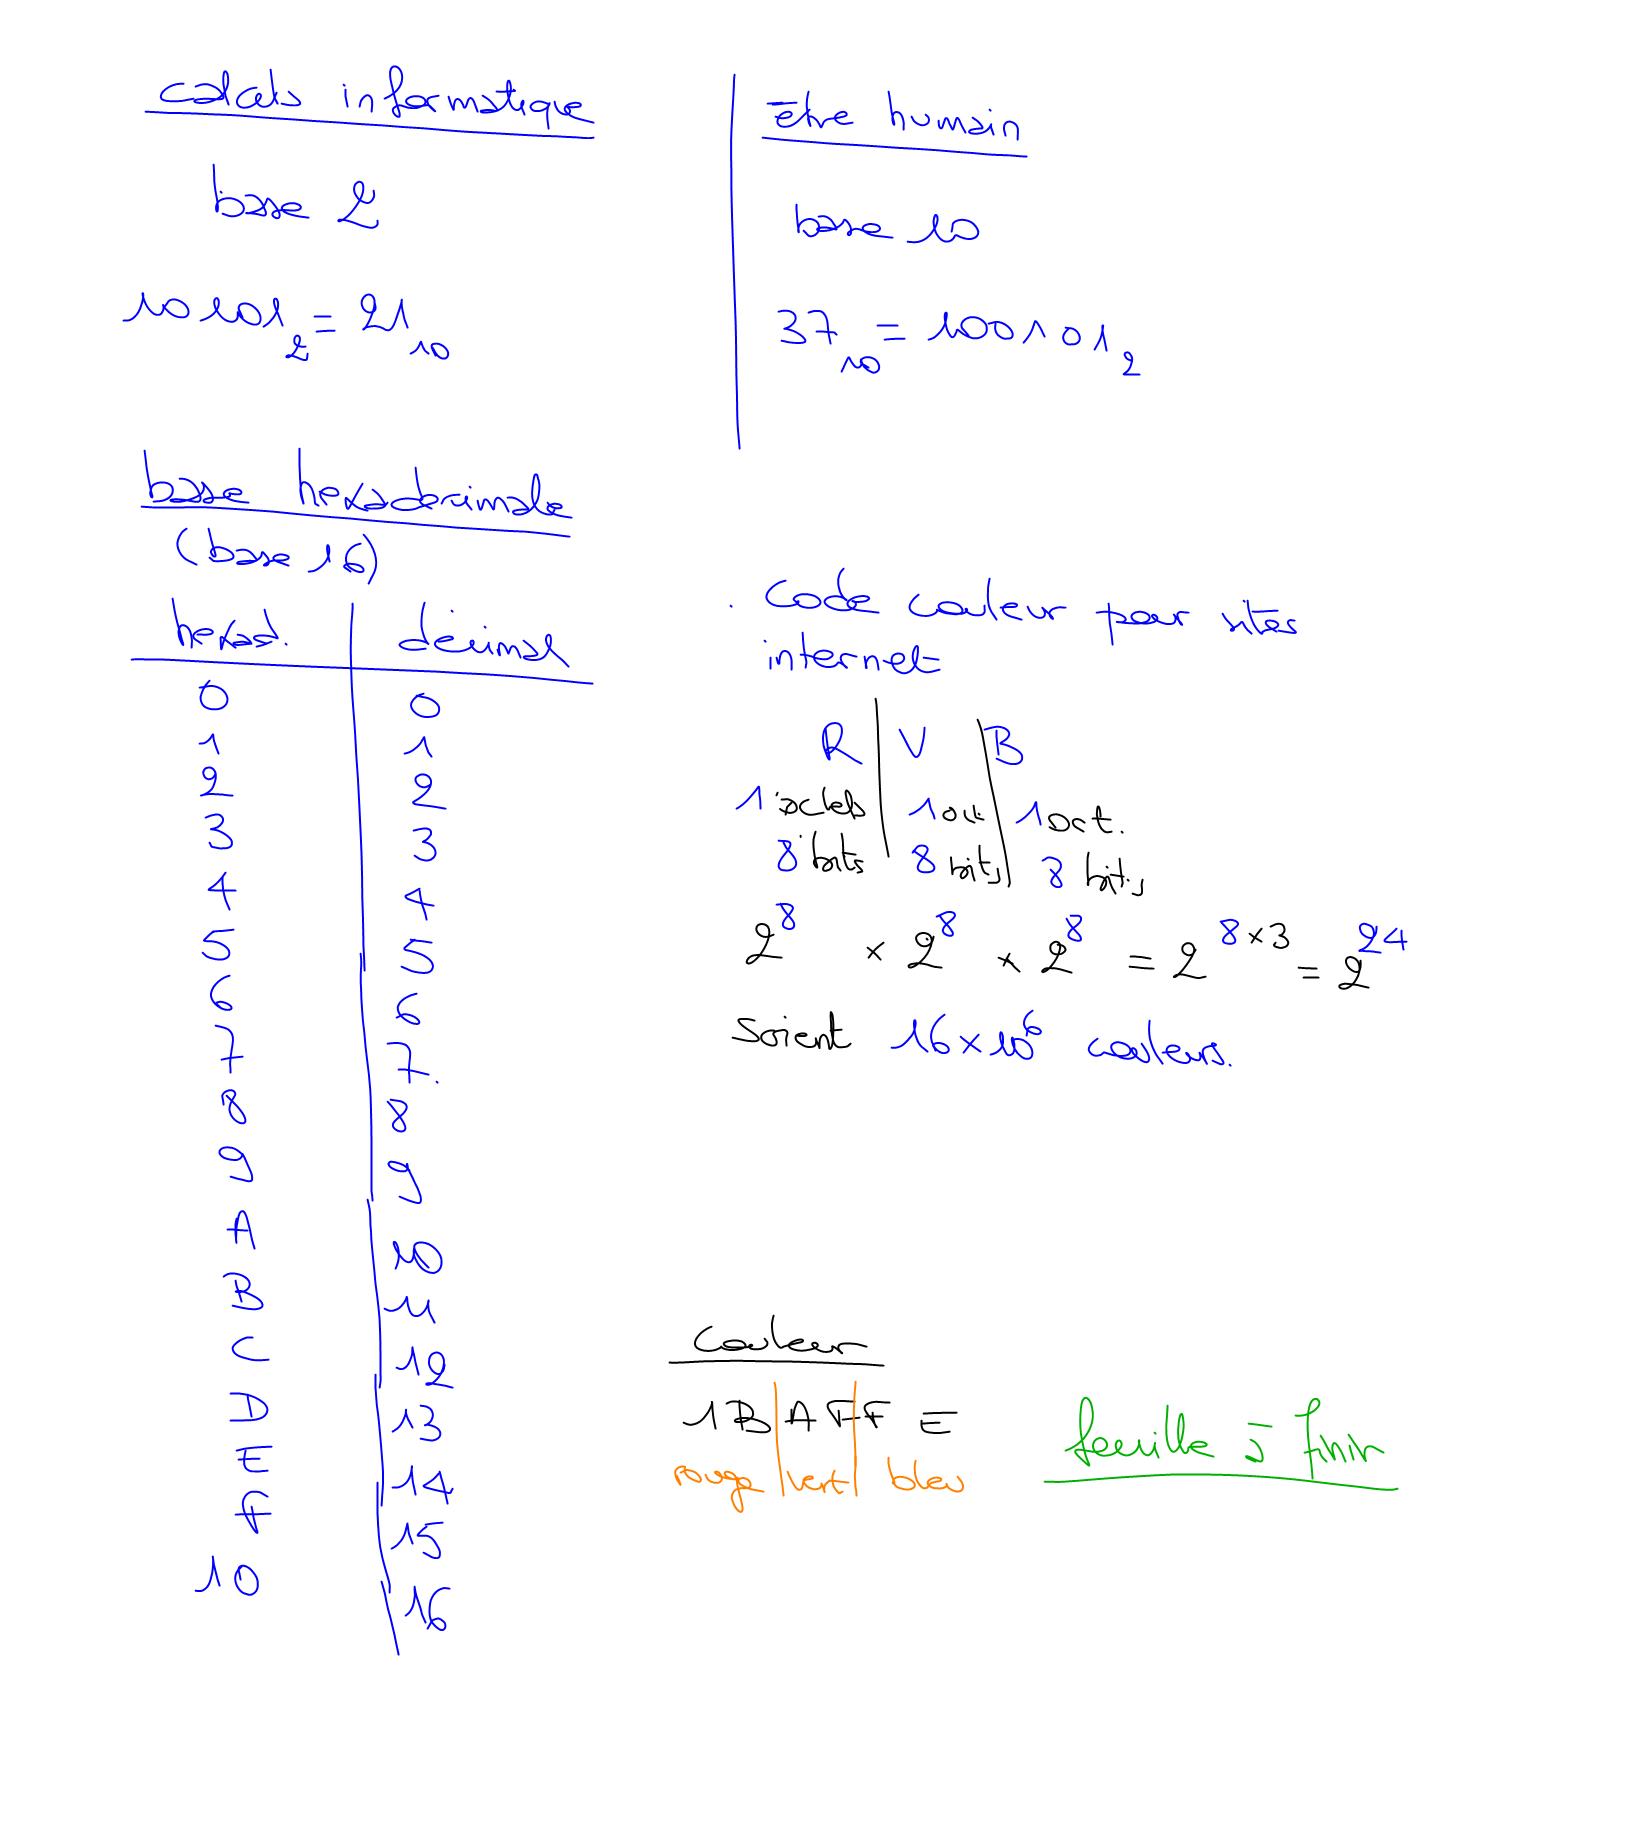 calculs informatique
base 2
10101₂ = 21₁₀
être humain
base 10
37₁₀ = 100101₂
base hexadécimale
(base 16)
hexad. | décimal
0 | 0
1 | 1
2 | 2
3 | 3
4 | 4
5 | 5
6 | 6
7 | 7.
8 | 8
9 | 9
A | 10
B | 11
C | 12
D | 13
E | 14
F | 15
10 | 16
. Code couleur pour sites
internet
R | V | B
1 octets | 1 oct | 1 oct.
8 bits | 8 bits | 8 bits
2⁸ × 2⁸ × 2⁸ = 2⁸ˣ³ = 2²⁴
Soient 16×10⁶ couleurs.
Couleur
1B|AF|FE
rouge | vert | bleu
feuille à finir